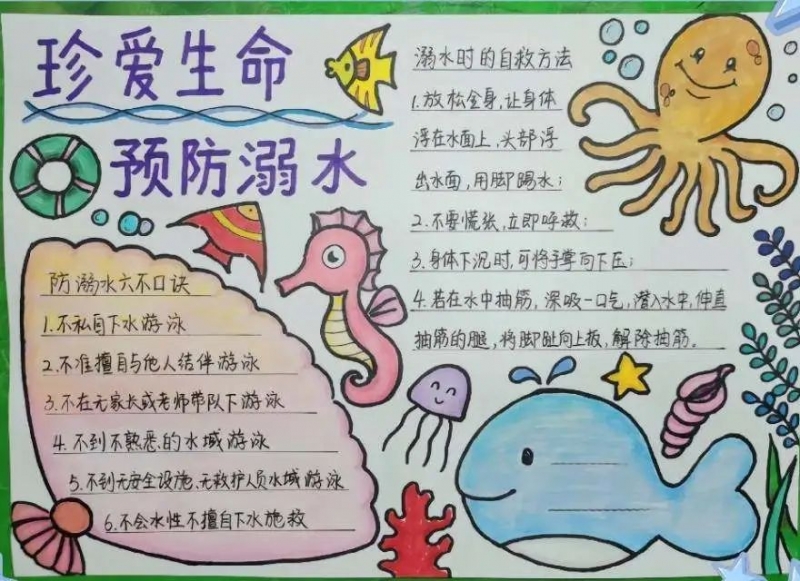 珍爱生命
预防溺水
防溺水六不口诀
1.不私自下水游泳
2.不准擅自与他人结伴游泳
3.不在无家长或老师带队下游泳
4.不到不熟悉的水域游泳
5.不到无安全设施、无救护人员水域游泳
6.不会水性不擅自下水施救
溺水时的自救方法
1.放松全身,让身体
浮在水面上,头部浮
出水面,用脚踢水;
2.不要慌张,立即呼救;
3.身体下沉时,可将手掌向下压;
4.若在水中抽筋,深吸一口气,潜入水中,伸直
抽筋的腿,将脚趾向上扳,解除抽筋。